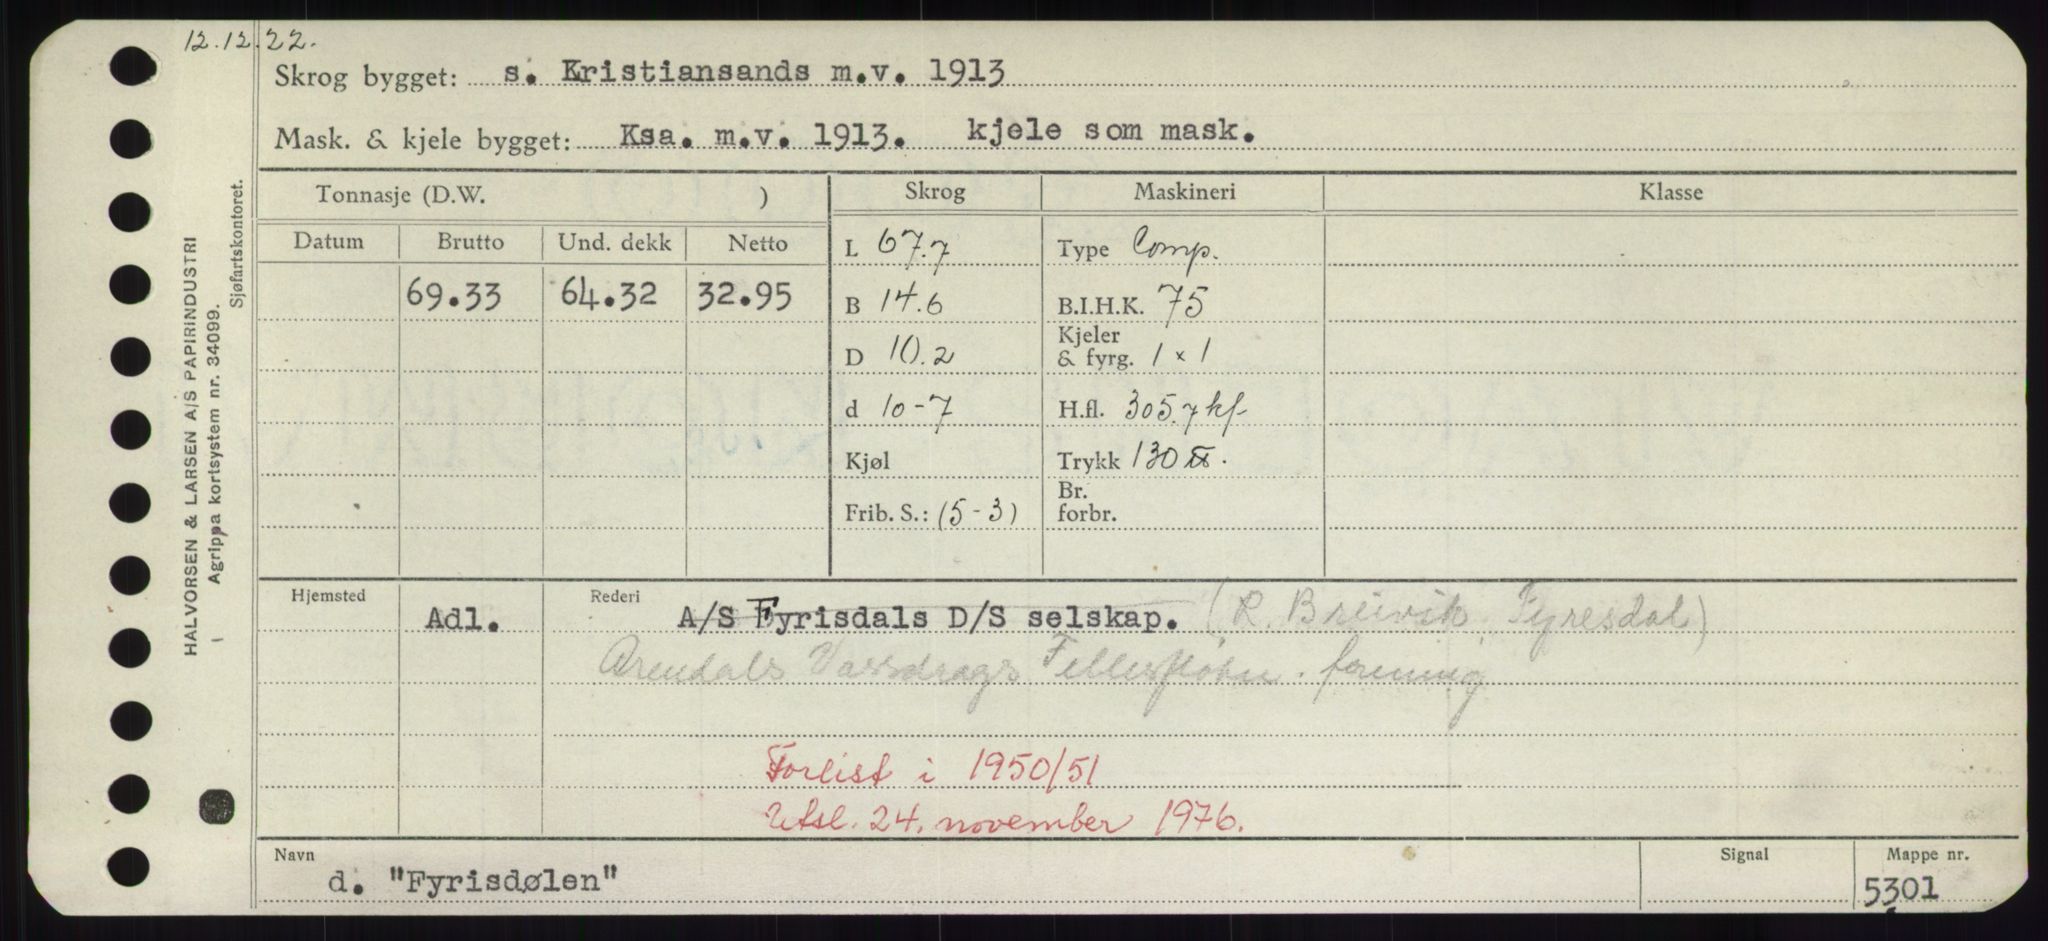 12.12.22.
Skrog bygget: s. Kristiansands m.v. 1913
Mask. & kjele bygget: Ksa. m.v. 1913. kjele som mask.
Tonnasje (D.W. ) Skrog Maskineri Klasse
Datum Brutto Und. dekk Netto L 67.7 Type Comp.
69.33 64.32 32.95 B 14.6 B.I.H.K. 75
Kjeler
D 10.2 & fyrg. 1 x 1
d 10-7 H.fl. 305.7 kf
Kjøl Trykk 130 ℔.
Br.
Frib. S.: (5-3) forbr.
Hjemsted Adl. Rederi A/S Fyrisdals D/S selskap. (R. Breivik, Fyresdal)
Arendals Vassdrags Fellesfløtn. forening
Forlist i 1950/51
Utsl. 24. november 1976.
Navn Signal Mappe nr.
d. "Fyrisdølen" 5301
HALVORSEN & LARSEN A/S PAPIRINDUSTRI
Agrippa kortsystem nr. 34099.
Sjøfartskontoret.